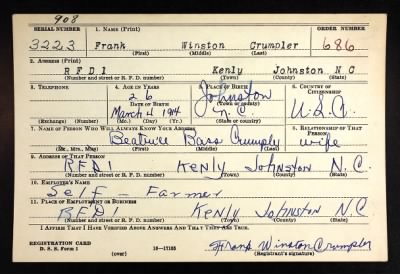 908
SERIAL NUMBER 1. NAME (Print) ORDER NUMBER
3223 Frank Winston Crumpler 686
(First) (Middle) (Last)
2. ADDRESS (Print)
RFD1 Kenly Johnston N C
(Number and street or R. F. D. number) (Town) (County) (State)
3. TELEPHONE 4. AGE IN YEARS 5. PLACE OF BIRTH 6. COUNTRY OF CITIZENSHIP
26 Johnston
DATE OF BIRTH (Town or county)
March 4 1914 N.C. U.S.A.
(Exchange) (Number) (Mo.) (Day) (Yr.) (State or country)
7. NAME OF PERSON WHO WILL ALWAYS KNOW YOUR ADDRESS 8. RELATIONSHIP OF THAT PERSON
Beatrice Bass Crumpler wife
(Mr., Mrs., Miss) (First) (Middle) (Last)
9. ADDRESS OF THAT PERSON
RFD1 Kenly Johnston N.C.
(Number and street or R. F. D. number) (Town) (County) (State)
10. EMPLOYER'S NAME
Self - Farmer
11. PLACE OF EMPLOYMENT OR BUSINESS
RFD1 Kenly Johnston N.C.
(Number and street or R. F. D. number) (Town) (County) (State)
I AFFIRM THAT I HAVE VERIFIED ABOVE ANSWERS AND THAT THEY ARE TRUE.
REGISTRATION CARD
D. S. S. Form 1 (over) 16-17105 Frank Winston Crumpler
(Registrant's signature)